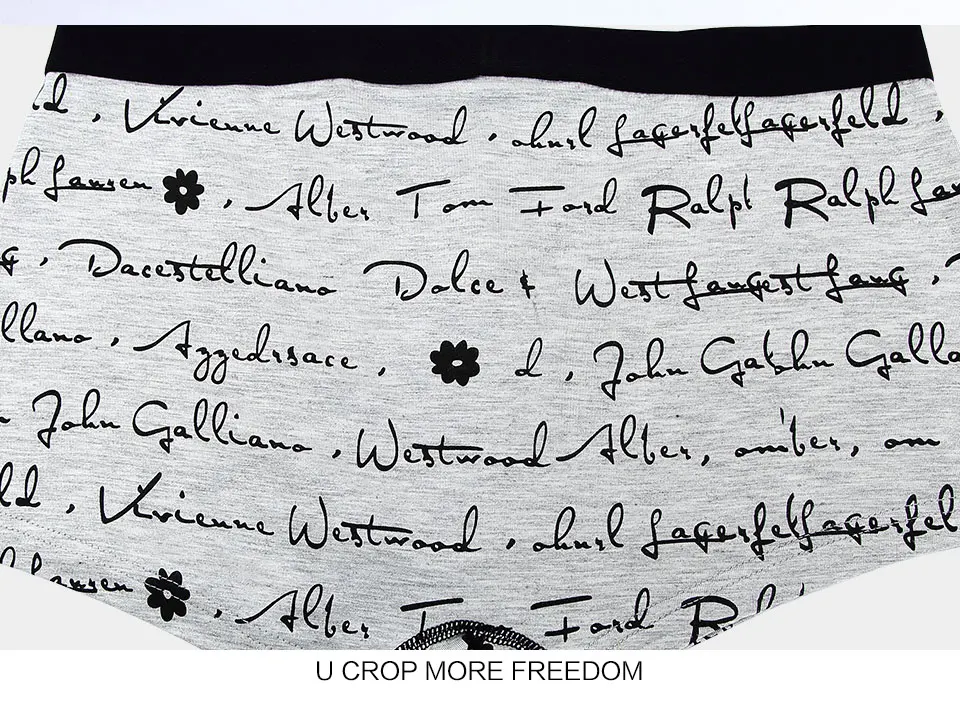 d , Vivienne Westwood , ohnrl Lagerfel Lagerfeld ,
ph Lauren , Alber Tom Ford Ralph Ralph Lau
g , Dacestelliano Dolce & West Langest Lang ,
llano , Aggedrsace , d , John Gakhn Galla
John Galliano , Westwood Alber, omber, om
ld , Vivienne Westwood , ohnrl Lagerfel Lagerfel
Lauren , Alber Tom Ford Ralph
U CROP MORE FREEDOM